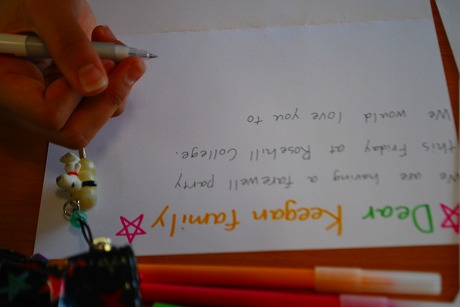 Dear Keegan family
We are having a farewell party
this Friday at Rosehill College.
We would love you to